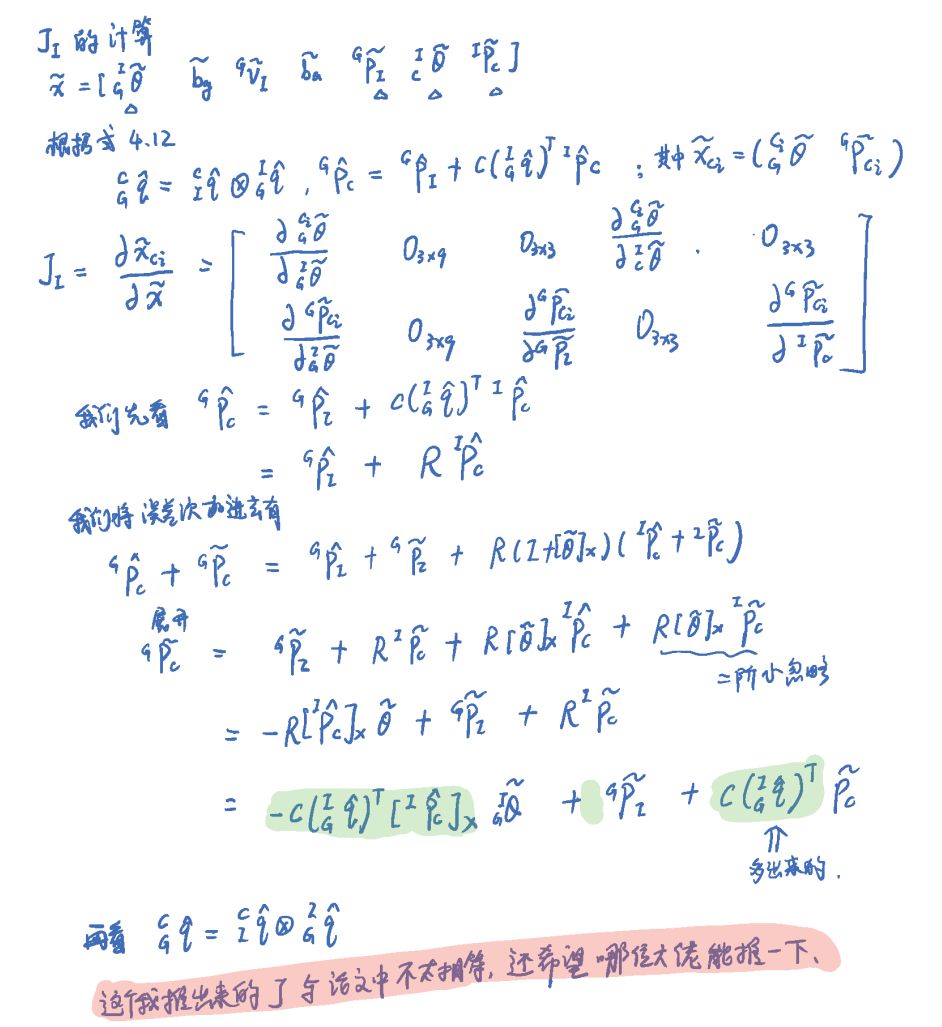 J_I 的计算
x̃ = [ ᴵ_G θ̃  b̃_g  ᴳṽ_I  b̃_a  ᴳp̃_I  ᴵ_C θ̃  ᴵp̃_C ]
△ △ △
根据式 4.12
ᶜ_G q̂ = ᶜ_I q̂ ⊗ ᴵ_G q̂ , ᴳp̂_C = ᴳp̂_I + C(ᴵ_G q̂)ᵀ ᴵp̂_C ; 其中 x̃_{Ci} = ( ^{Ci}_G θ̃  ᴳp̃_{Ci} )
J_I = ∂x̃_{Ci} / ∂x̃ = [ ∂ ^{Ci}_G θ̃ / ∂ ᴵ_G θ̃  0_{3×9}  0_{3×3}  ∂ ^{Ci}_G θ̃ / ∂ ᴵ_C θ̃ .  0_{3×3}
∂ ᴳp̃_{Ci} / ∂ ᴵ_G θ̃  0_{3×9}  ∂ᴳp̃_{Ci} / ∂ᴳp̃_I  0_{3×3}  ∂ᴳp̃_{Ci} / ∂ᴵp̃_C ]
我们先看 ᴳp̂_C = ᴳp̂_I + C(ᴵ_G q̂)ᵀ ᴵp̂_C
= ᴳp̂_I + R ᴵp̂_C
我们将误差次加进去有
ᴳp̂_C + ᴳp̃_C = ᴳp̂_I + ᴳp̃_I + R(I+[θ̃]ₓ)(ᴵp̂_C + ᴵp̃_C)
展开
ᴳp̃_C = ᴳp̃_I + R ᴵp̃_C + R[θ̃]ₓ ᴵp̂_C + R[θ̃]ₓ ᴵp̃_C
二阶小忽略
= -R[ᴵp̂_C]ₓ θ̃ + ᴳp̃_I + R ᴵp̃_C
= -C(ᴵ_G q̂)ᵀ [ᴵp̂_C]ₓ ᴵ_G θ̃ + ᴳp̃_I + C(ᴵ_G q̂)ᵀ p̃_C
⇑
多出来的.
再看 ᶜ_G q̂ = ᶜ_I q̂ ⊗ ᴵ_G q̂
这个我推出来的了与论文中不太相等, 还希望哪位大佬能推一下、